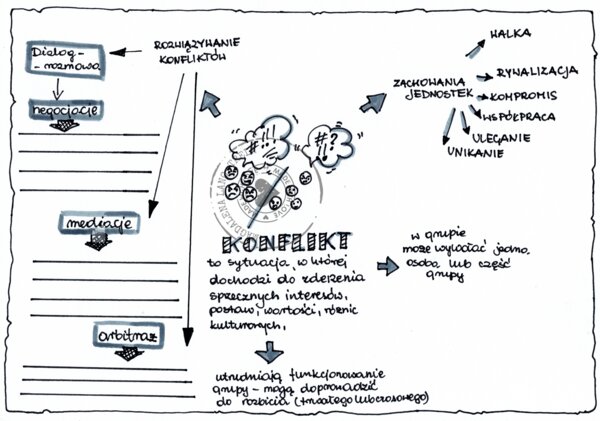 Dialog-
-rozmowa
ROZWIĄZYWANIE
KONFLIKTÓW
negocjacje
mediacje
arbitraż
WALKA
ZACHOWANIA
JEDNOSTEK
RYWALIZACJA
KOMPROMIS
WSPÓŁPRACA
ULEGANIE
UNIKANIE
#!!!
#?
!!
KONFLIKT
to sytuacja, w której
dochodzi do zderzenia
sprzecznych interesów,
postaw, wartości, różnic
kulturowych,
w grupie
może wywołać jedna
osoba lub część
grupy
utrudniają funkcjonowanie
grupy - mogą doprowadzić
do rozbicia (trwałego lub czasowego)